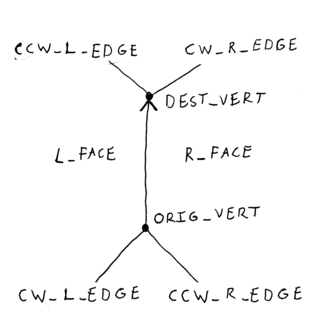 CCW_L_EDGE CW_R_EDGE
DEST_VERT
L_FACE R_FACE
ORIG_VERT
CW_L_EDGE CCW_R_EDGE